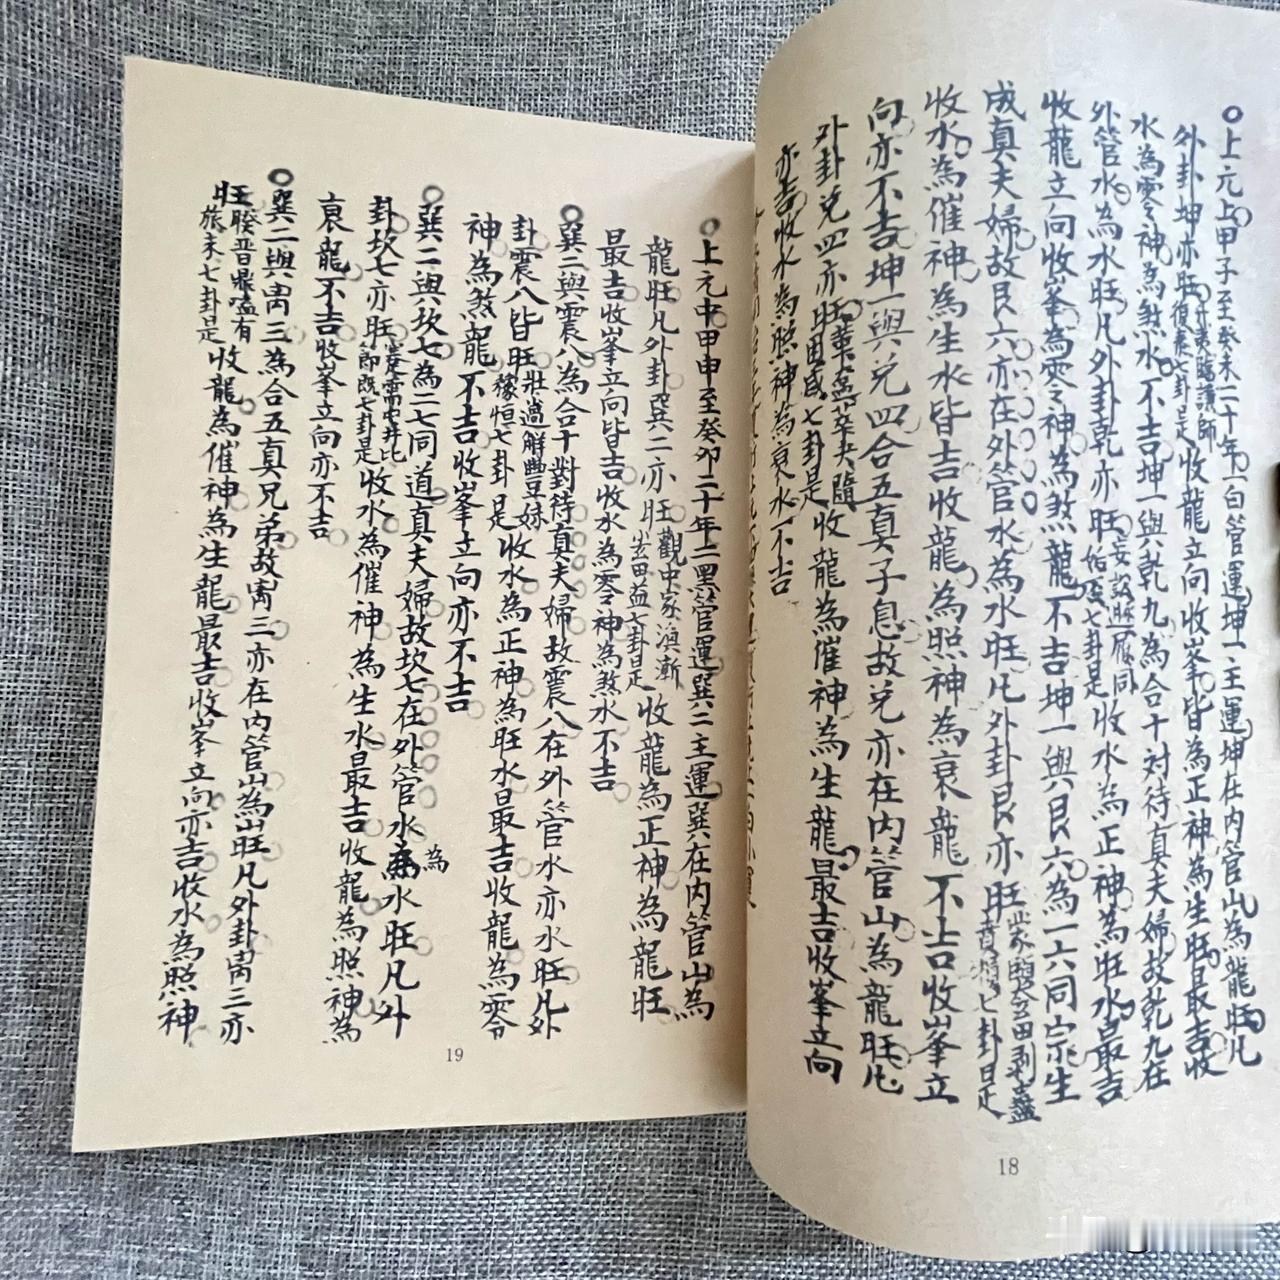 ○上元上甲子至癸未二十年一白管運坤一主運坤在內管山為龍旺凡
外卦坤亦旺升泰臨謙師復豫七卦是收龍立向收峯皆為正神為生旺最吉收
水為零神為煞水不吉坤一與乾九為合十对待真夫婦故乾九在
外管水為水旺凡外卦乾亦旺妄訟遯履同姤否七卦是收水為正神為旺水最吉
收龍立向收峯為零神為煞龍不吉坤一與艮六為一六同宗生
成真夫婦故艮六亦在外管水為水旺凡外卦艮亦旺蒙剥蠱賁頤七卦是
收水為催神為生水皆吉收龍為照神為衰龍不吉收峯立
向亦不吉坤一與兌四合五真子息故兌亦在內管山為龍旺凡
外卦兌四亦旺革萃夬隨困咸七卦是收龍為催神為生龍最吉收峯立向
亦吉收水為照神為衰水不吉
18
○上元中甲申至癸卯二十年二黑管運巽二主運巽在內管山為
龍旺凡外卦巽二亦旺觀中家渙漸益七卦是收龍為正神為龍旺
最吉收峯立向皆吉收水為零神為煞水不吉
○巽二與震八為合十對待真夫婦故震八在外管水亦水旺凡外
卦震八皆旺壯過解豐妹豫恒七卦是收水為正神為旺水最吉收龍為零
神為煞龍不吉收峯立向亦不吉
○巽二與坎七為二七同道真夫婦故坎七在外管水為水旺凡外
卦坎七亦旺蹇需屯井比節既七卦是收水為催神為生水最吉收龍為照神為
衰龍不吉收峯立向亦不吉
○巽二與离三為合五真兄弟故离三亦在內管山為山旺凡外卦离三亦
旺睽晋鼎嗑有旅未七卦是收龍為催神為生龍最吉收峯立向亦吉收水為照神
19